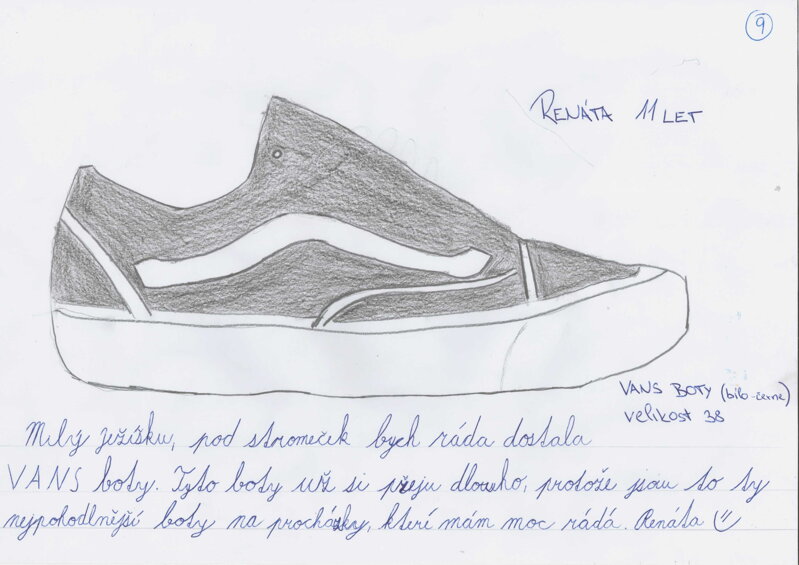 9
RENÁTA 11 LET
VANS BOTY (bílo-černé)
velikost 38
Milý ježíšku, pod stromeček bych ráda dostala
VANS boty. Tyto boty už si přeju dlouho, protože jsou to ty
nejpohodlnější boty na procházky, kteří mám moc rádá. Renáta